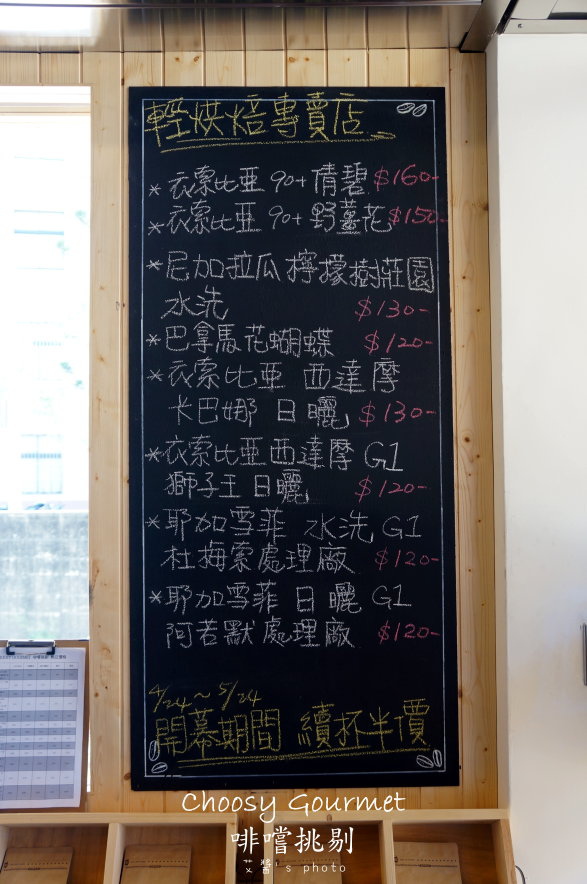 輕烘焙專賣店
*衣索比亞 90+ 倩碧 $160-
*衣索比亞 90+ 野薑花 $150-
*尼加拉瓜 檸檬樹莊園
水洗 $130-
*巴拿馬花蝴蝶 $120-
*衣索比亞 西達摩
卡巴娜 日曬 $130-
*衣索比亞西達摩 G1
獅子王 日曬 $120-
*耶加雪菲 水洗 G1
杜梅索處理廠 $120-
*耶加雪菲 日曬 G1
阿若默處理廠 $120-
4/24~5/24
開幕期間 續杯半價
Choosy Gourmet
啡嚐挑剔
艾醬's photo